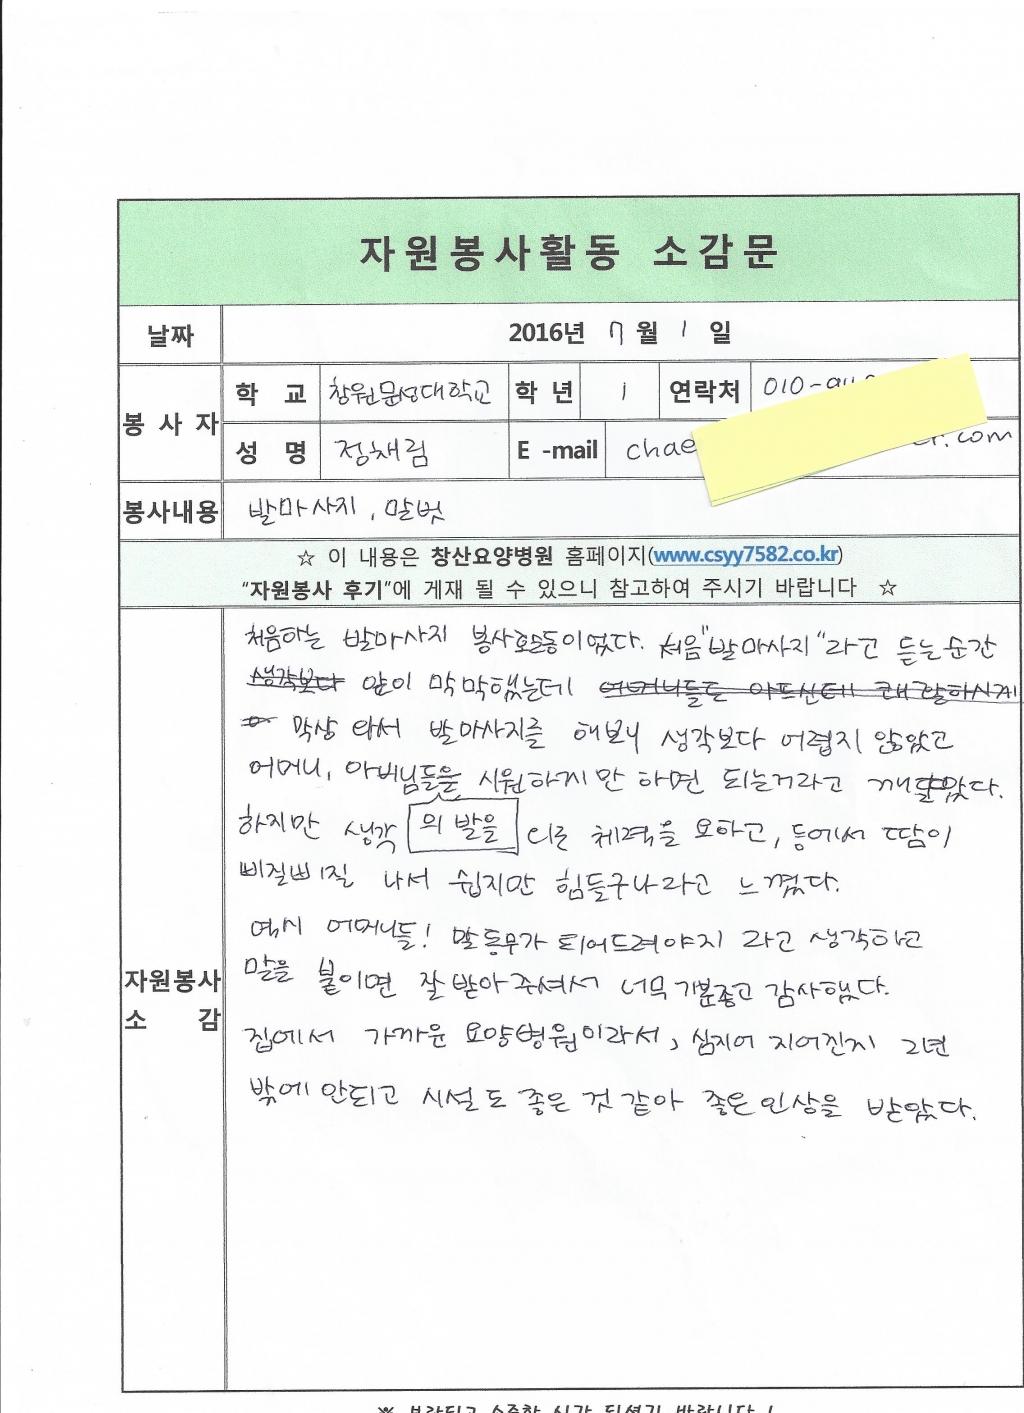 자원봉사활동 소감문
날짜 2016년 7월 1일
봉사자 학 교 창원문성대학교 학 년 1 연락처 010-
성 명 정채림 E -mail
봉사내용 발마사지, 말벗
☆ 이 내용은 창산요양병원 홈페이지(www.csyy7582.co.kr)
“자원봉사 후기”에 게재 될 수 있으니 참고하여 주시기 바랍니다 ☆
자원봉사 소 감
처음하는 발마사지 봉사활동이였다. 처음"발마사지"라고 듣는순간
생각보다 앞이 막막했는데
막상 와서 발마사지를 해보니 생각보다 어렵지 않았고
어머니, 아버님들을 시원하게만 하면 되는거라고 깨달았다.
의 발을
하지만 생각 체력을 요하고, 등에서 땀이
삐질삐질 나서 쉽지만 힘들구나라고 느꼈다.
역시 어머니들! 말동무가 되어드려야지 라고 생각하고
말을 붙이면 잘 받아주셔서 너무 기분좋고 감사했다.
집에서 가까운 요양병원이라서, 심지어 지어진지 2년
밖에 안되고 시설도 좋은 것 같아 좋은인상을 받았다.